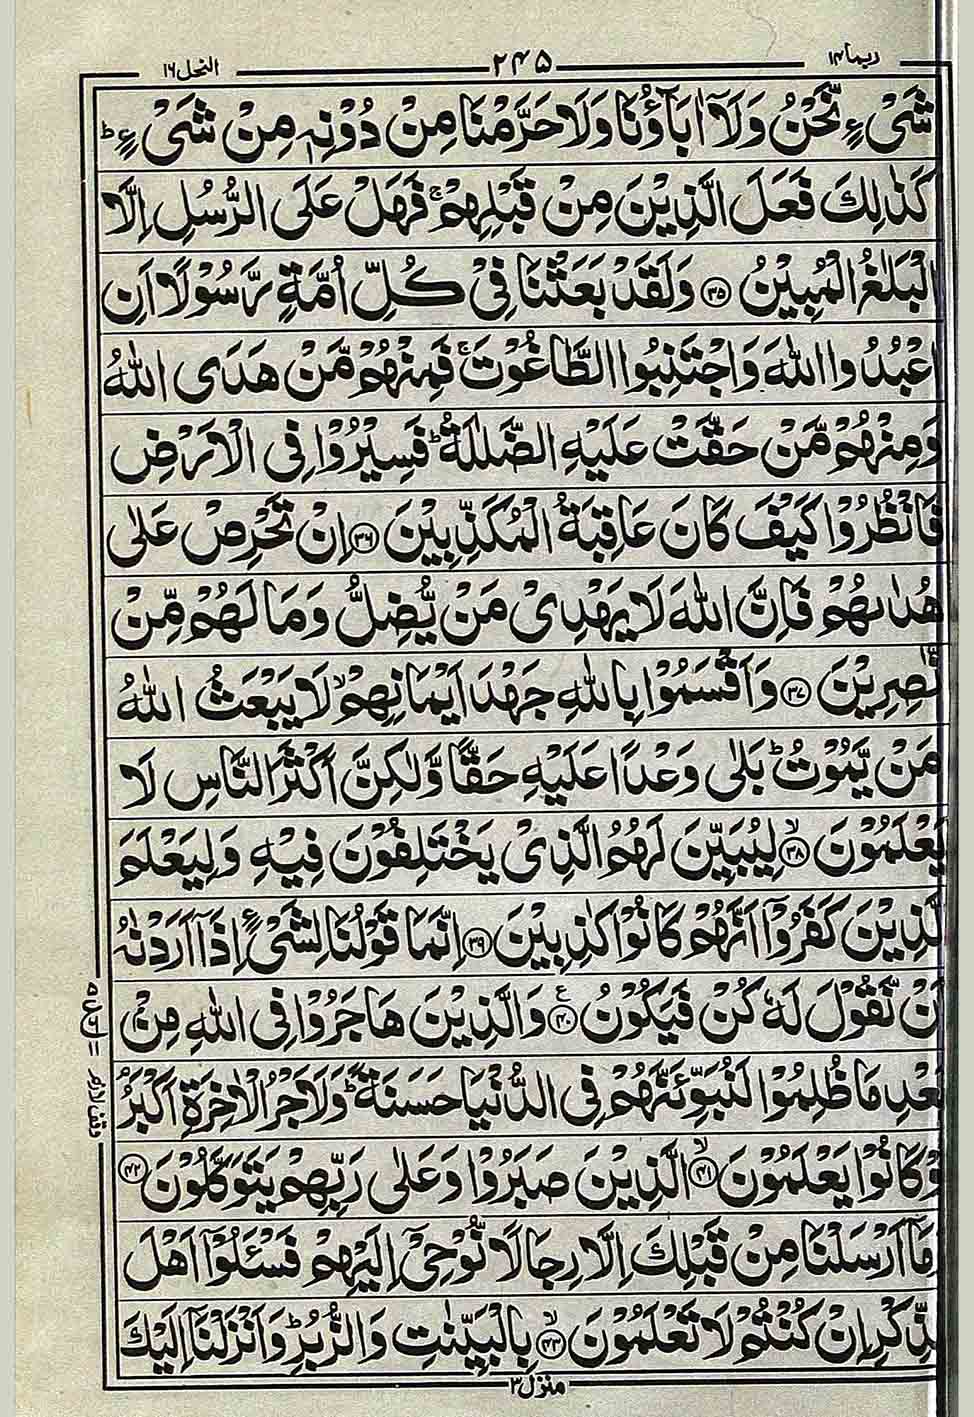 ربما ١٤
٢٤٥
النحل ١٦
شَیْءٍ نَّحْنُ وَلَاۤ اٰبَآؤُنَا وَلَا حَرَّمْنَا مِنْ دُوْنِهٖ مِنْ شَیْءٍ ؕ
كَذٰلِكَ فَعَلَ الَّذِیْنَ مِنْ قَبْلِهِمْ ۚ فَهَلْ عَلَى الرُّسُلِ اِلَّا
الْبَلٰغُ الْمُبِیْنُ ﴿۳۵﴾ وَلَقَدْ بَعَثْنَا فِیْ كُلِّ اُمَّةٍ رَّسُوْلًا اَنِ
اعْبُدُوا اللّٰهَ وَاجْتَنِبُوا الطَّاغُوْتَ ۚ فَمِنْهُمْ مَّنْ هَدَى اللّٰهُ
وَمِنْهُمْ مَّنْ حَقَّتْ عَلَیْهِ الضَّلٰلَةُ ؕ فَسِیْرُوْا فِی الْاَرْضِ
فَانْظُرُوْا كَیْفَ كَانَ عَاقِبَةُ الْمُكَذِّبِیْنَ ﴿۳۶﴾ اِنْ تَحْرِصْ عَلٰى
هُدٰىهُمْ فَاِنَّ اللّٰهَ لَا یَهْدِیْ مَنْ یُّضِلُّ وَمَا لَهُمْ مِّنْ
نّٰصِرِیْنَ ﴿۳۷﴾ وَاَقْسَمُوْا بِاللّٰهِ جَهْدَ اَیْمَانِهِمْ ۙ لَا یَبْعَثُ اللّٰهُ
مَنْ یَّمُوْتُ ؕ بَلٰى وَعْدًا عَلَیْهِ حَقًّا وَّلٰكِنَّ اَكْثَرَ النَّاسِ لَا
یَعْلَمُوْنَ ﴿۳۸﴾ ۙ لِیُبَیِّنَ لَهُمُ الَّذِیْ یَخْتَلِفُوْنَ فِیْهِ وَلِیَعْلَمَ
الَّذِیْنَ كَفَرُوْۤا اَنَّهُمْ كَانُوْا كٰذِبِیْنَ ﴿۳۹﴾ اِنَّمَا قَوْلُنَا لِشَیْءٍ اِذَاۤ اَرَدْنٰهُ
اَنْ نَّقُوْلَ لَهٗ كُنْ فَیَكُوْنُ ﴿۴۰﴾ ع وَالَّذِیْنَ هَاجَرُوْا فِی اللّٰهِ مِنْۢ
بَعْدِ مَا ظُلِمُوْا لَنُبَوِّئَنَّهُمْ فِی الدُّنْیَا حَسَنَةً ؕ وَلَاَجْرُ الْاٰخِرَةِ اَكْبَرُ ۘ
لَوْ كَانُوْا یَعْلَمُوْنَ ﴿۴۱﴾ ۙ الَّذِیْنَ صَبَرُوْا وَعَلٰى رَبِّهِمْ یَتَوَكَّلُوْنَ ﴿۴۲﴾
مَاۤ اَرْسَلْنَا مِنْ قَبْلِكَ اِلَّا رِجَالًا نُّوْحِیْۤ اِلَیْهِمْ فَسْئَلُوْۤا اَهْلَ
الذِّكْرِ اِنْ كُنْتُمْ لَا تَعْلَمُوْنَ ﴿۴۳﴾ ۙ بِالْبَیِّنٰتِ وَالزُّبُرِ ؕ وَاَنْزَلْنَاۤ اِلَیْكَ
منزل ٣